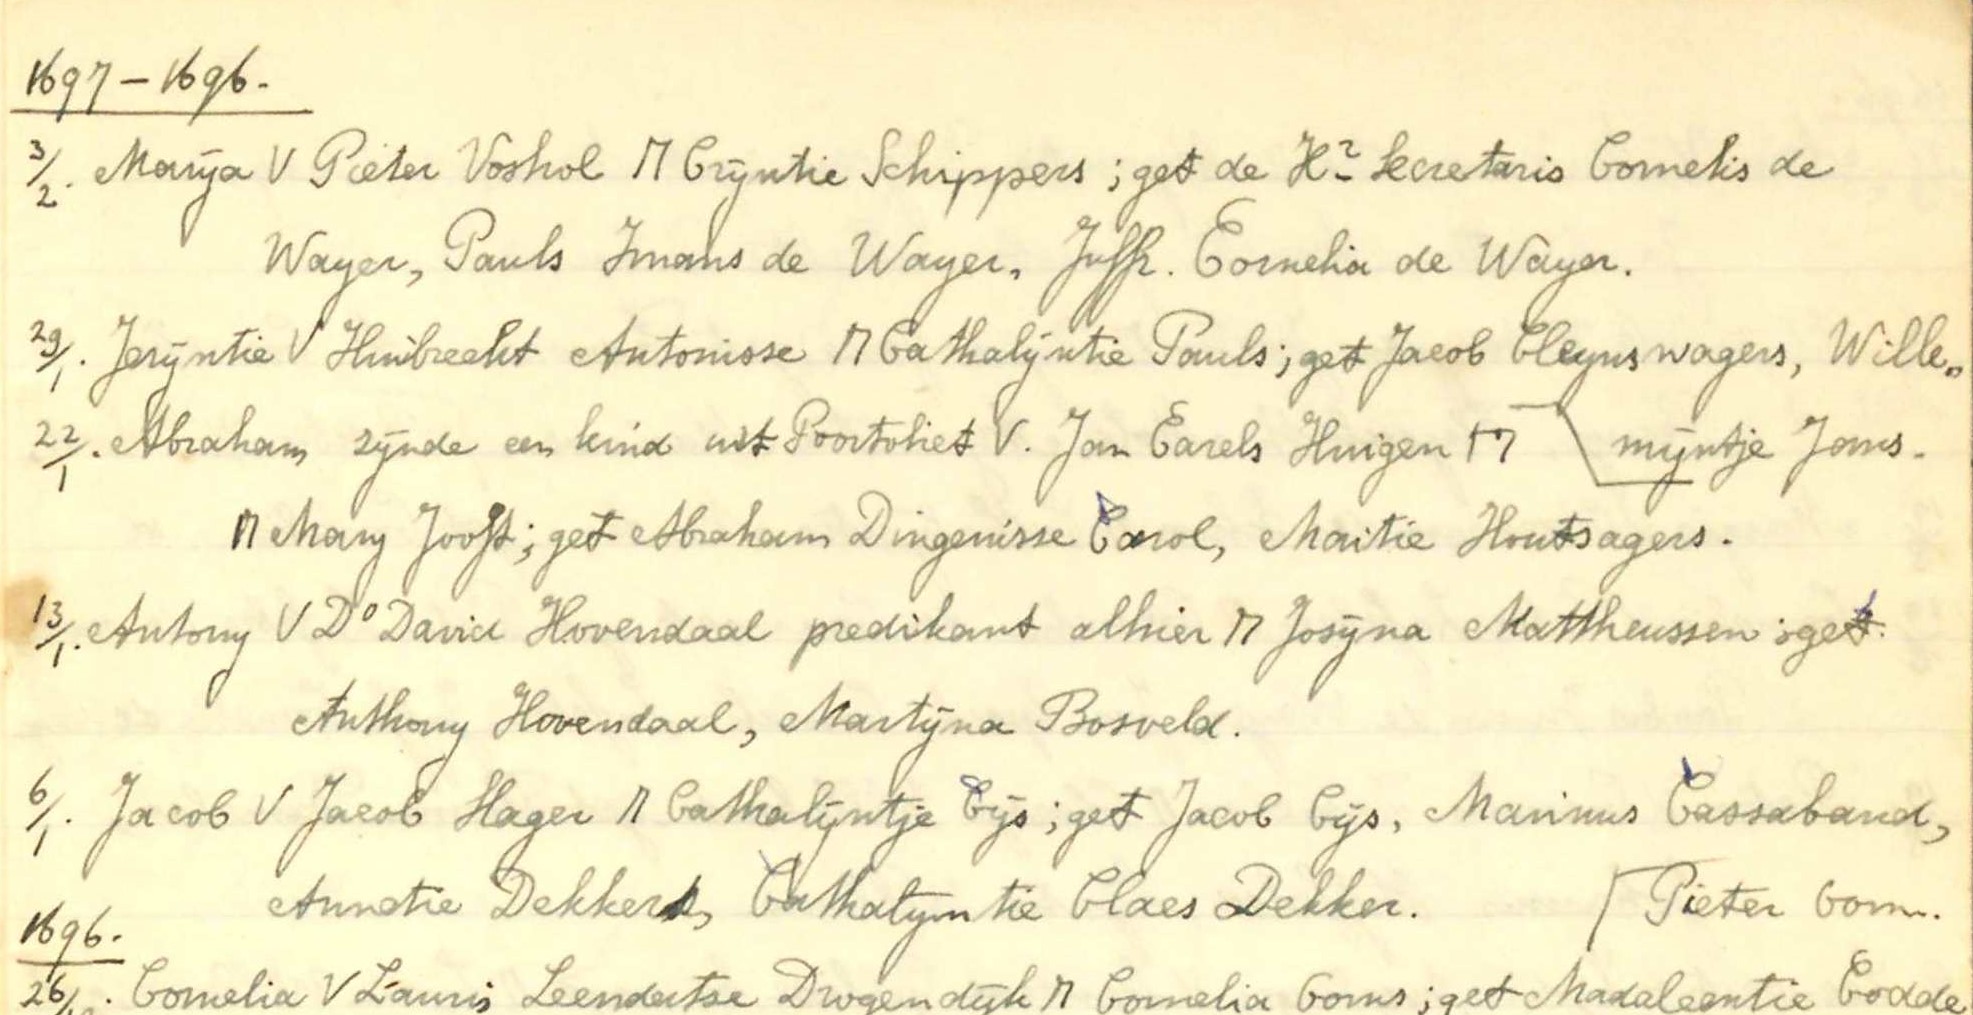 1697 – 1696.
3/2. Marÿa V Pieter Voshol M Crÿntie Schippers ; get de Hr. Secretaris Cornelis de
Wayer, Pauls Imans de Wayer, Juffr. Cornelia de Wayer.
29/1. Jerÿntie V Huibrecht Antonisse M Cathalÿntie Pauls ; get Jacob Cleynswagers, Wille„
22/1. Abraham zÿnde een kind uit Poortvliet V. Jan Carels Huigen M mÿntje Jans.
M Mary Joost ; get Abraham Dingenisse Carol, Maitie Houtsagers.
13/1. Antony V Do David Hovendaal predikant alhier M Josÿna Mattheussen ; get.
Anthony Hovendaal, Martÿna Bosveld.
6/1. Jacob V Jacob Hager M Cathalÿntje Cÿs ; get Jacob Cÿs, Marinus Cassaband,
Annetie Dekkers, Cathalyntie Claes Dekker. Pieter Corn.
1696.
26/ . Cornelia V Lauris Leendertse Drogendÿk M Cornelia Corns ; get Madaleentie Codde